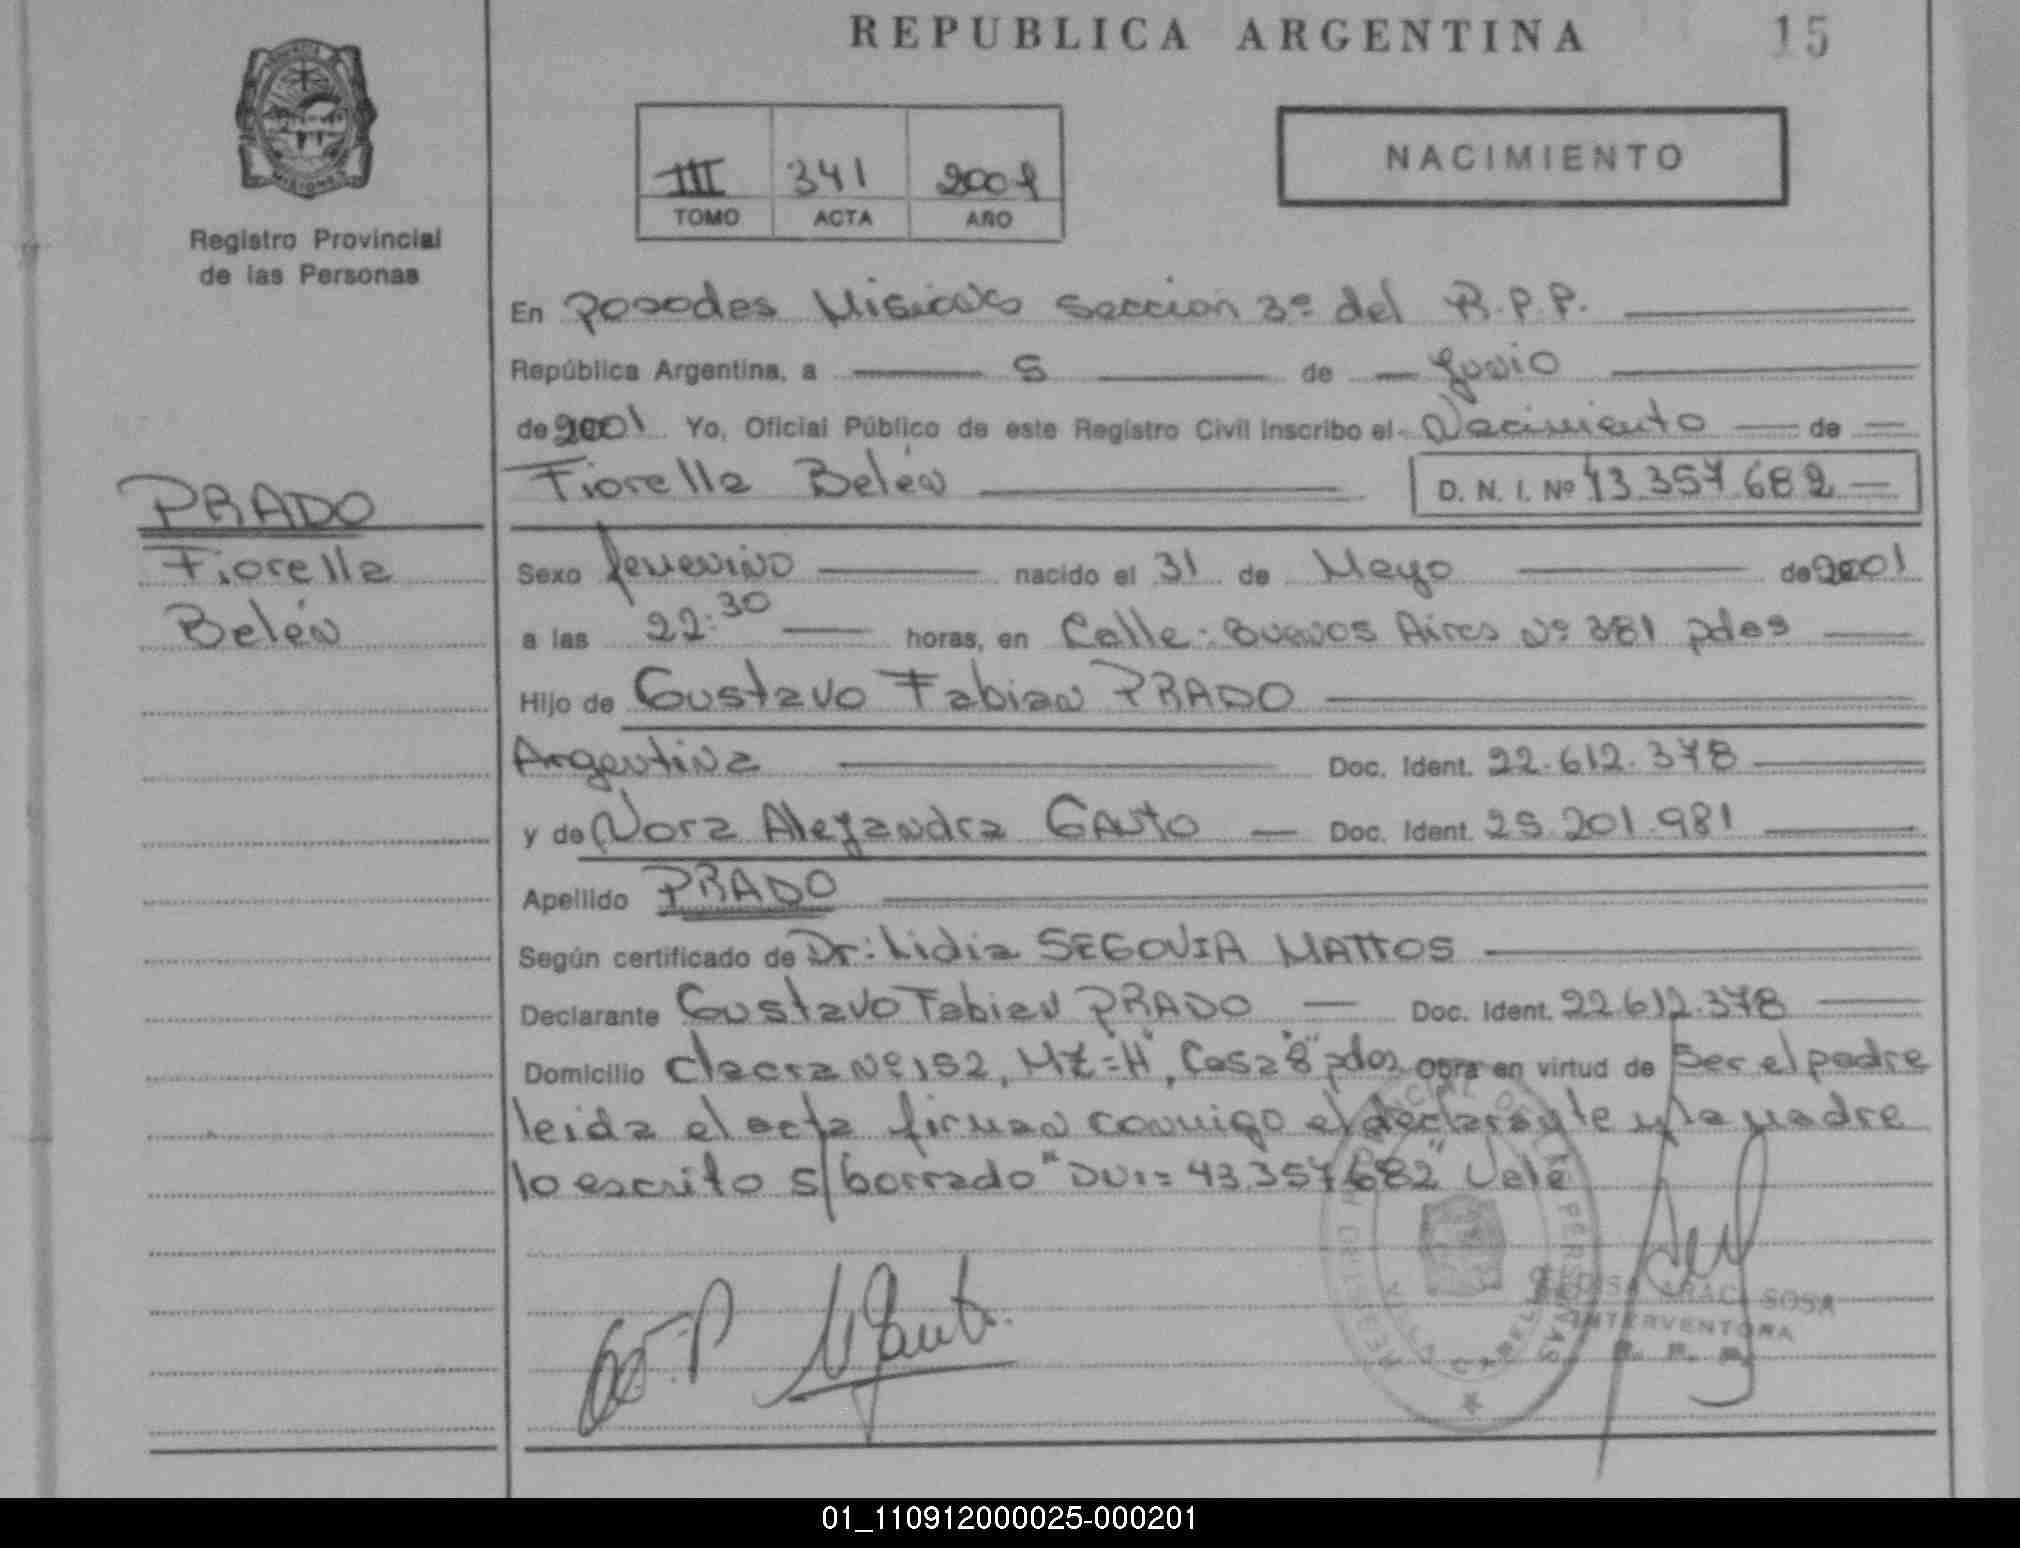 REPUBLICA ARGENTINA 15
MISIONES
Registro Provincial
de las Personas
III 341 2001
TOMO ACTA AÑO
NACIMIENTO
En Posadas Misiones Seccion 3º del R.P.P.
República Argentina, a 5 de Junio
de 2001 Yo, Oficial Público de este Registro Civil inscribo el Nacimiento de
Fiorella Belén D. N. I. Nº 43.357.682
PRADO
Fiorella
Belén
Sexo femenino nacido el 31 de Mayo de 2001
a las 22:30 horas, en Calle: Buenos Aires Nº 381 pdas
Hijo de Gustavo Fabian PRADO
Argentina Doc. Ident. 22.612.378
y de Nora Alejandra GAUTO Doc. Ident. 25.201.981
Apellido PRADO
Según certificado de Dr: Lidia SEGOVIA MATTOS
Declarante Gustavo Fabian PRADO Doc. Ident. 22.612.378
Domicilio Chacra Nº 152, MZ="H", Casa "8" pdas Obra en virtud de Ser el padre
leida el acta firman conmigo el declarante y la madre
lo escrito s/borrado "DNI= 43.357.682" Vale
SOSA
INTERVENTORA
01_110912000025-000201